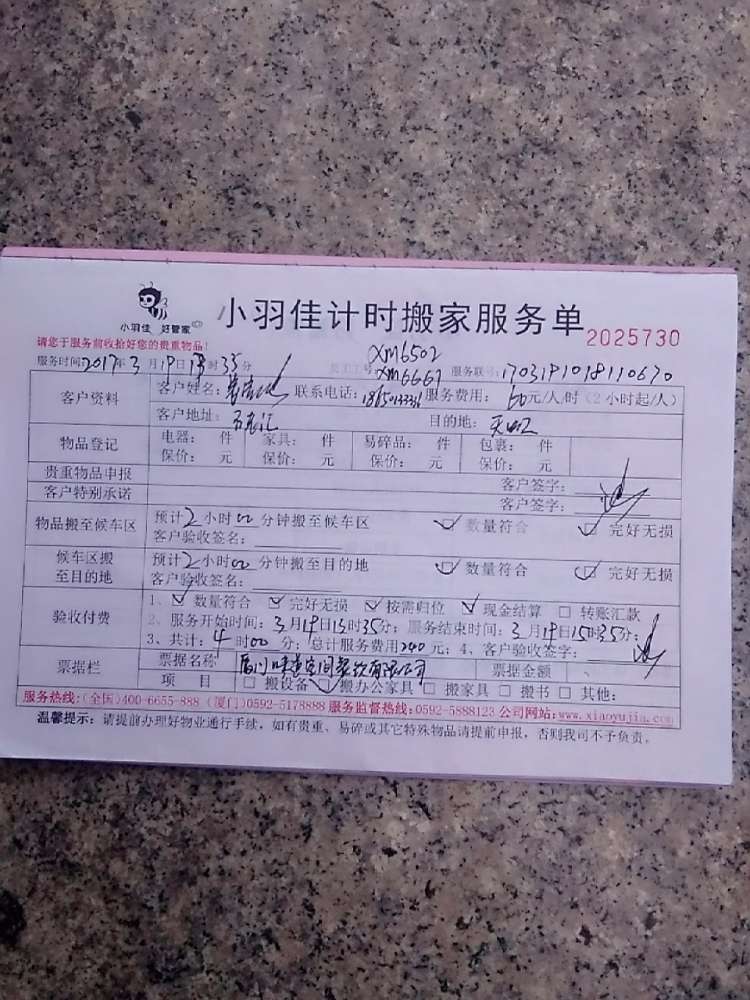 小羽佳 好管家
小羽佳计时搬家服务单
2025730
请您于服务前收拾好您的贵重物品!
XM6502
服务时间:2017年3月19日13时35分 员工工号: XM6667 服务联号:1703191018110670
客户资料 客户姓名: 联系电话: 服务费用:60元/人/时(2小时起/人)
客户地址: 目的地:
物品登记 电器: 件 家具: 件 易碎品: 件 包裹: 件
保价: 元 保价: 元 保价: 元 保价: 元
贵重物品申报 客户签字:
客户特别承诺 客户签字:
物品搬至候车区 预计2小时00分钟搬至候车区 数量符合 完好无损
客户验收签名:
候车区搬至目的地 预计2小时00分钟搬至目的地 数量符合 完好无损
客户验收签名:
验收付费 1、数量符合 完好无损 按需归位 现金结算 转账汇款
2、服务开始时间:3月19日13时35分;服务结束时间:3月19日15时35分;
3、共计:4时00分;总计服务费用240元;4、客户验收签字:
票据栏 票据名称 厦门味 空间餐饮有限公司 票据金额
项 目 搬设备 搬办公家具 搬家具 搬书 其他:
服务热线:(全国)400-6655-888 (厦门)0592-5178888 服务监督热线:0592-5888123 公司网站:www.xiaoyujia.com
温馨提示:请提前办理好物业通行手续,如有贵重、易碎或其它特殊物品请提前申报,否则我司不予负责。